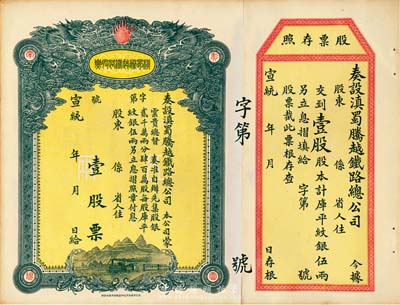 股票存照
奏設滇蜀騰越鐵路總公司 今據
股東 係 省人住
交到壹股股本計庫平紋銀伍兩
另立息摺填給 字第 號
股票裁此票根存查
宣統 年 月 日存根
字第 號
奏設滇蜀騰越鐵路總公司 本公司蒙
雲貴總督 奏准自辦先集股銀
貳千萬兩分肆百萬股每股庫平
紋銀伍兩另立息摺照章付息
字第 號
股東 係 省人住
壹股票
宣統 年 月 日給